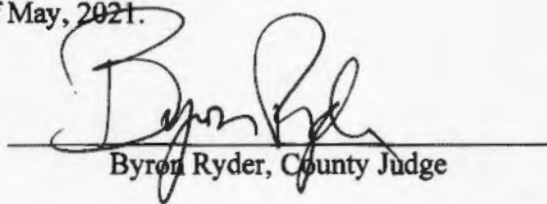 May, 2021.
Byron Ryder
Byron Ryder, County Judge